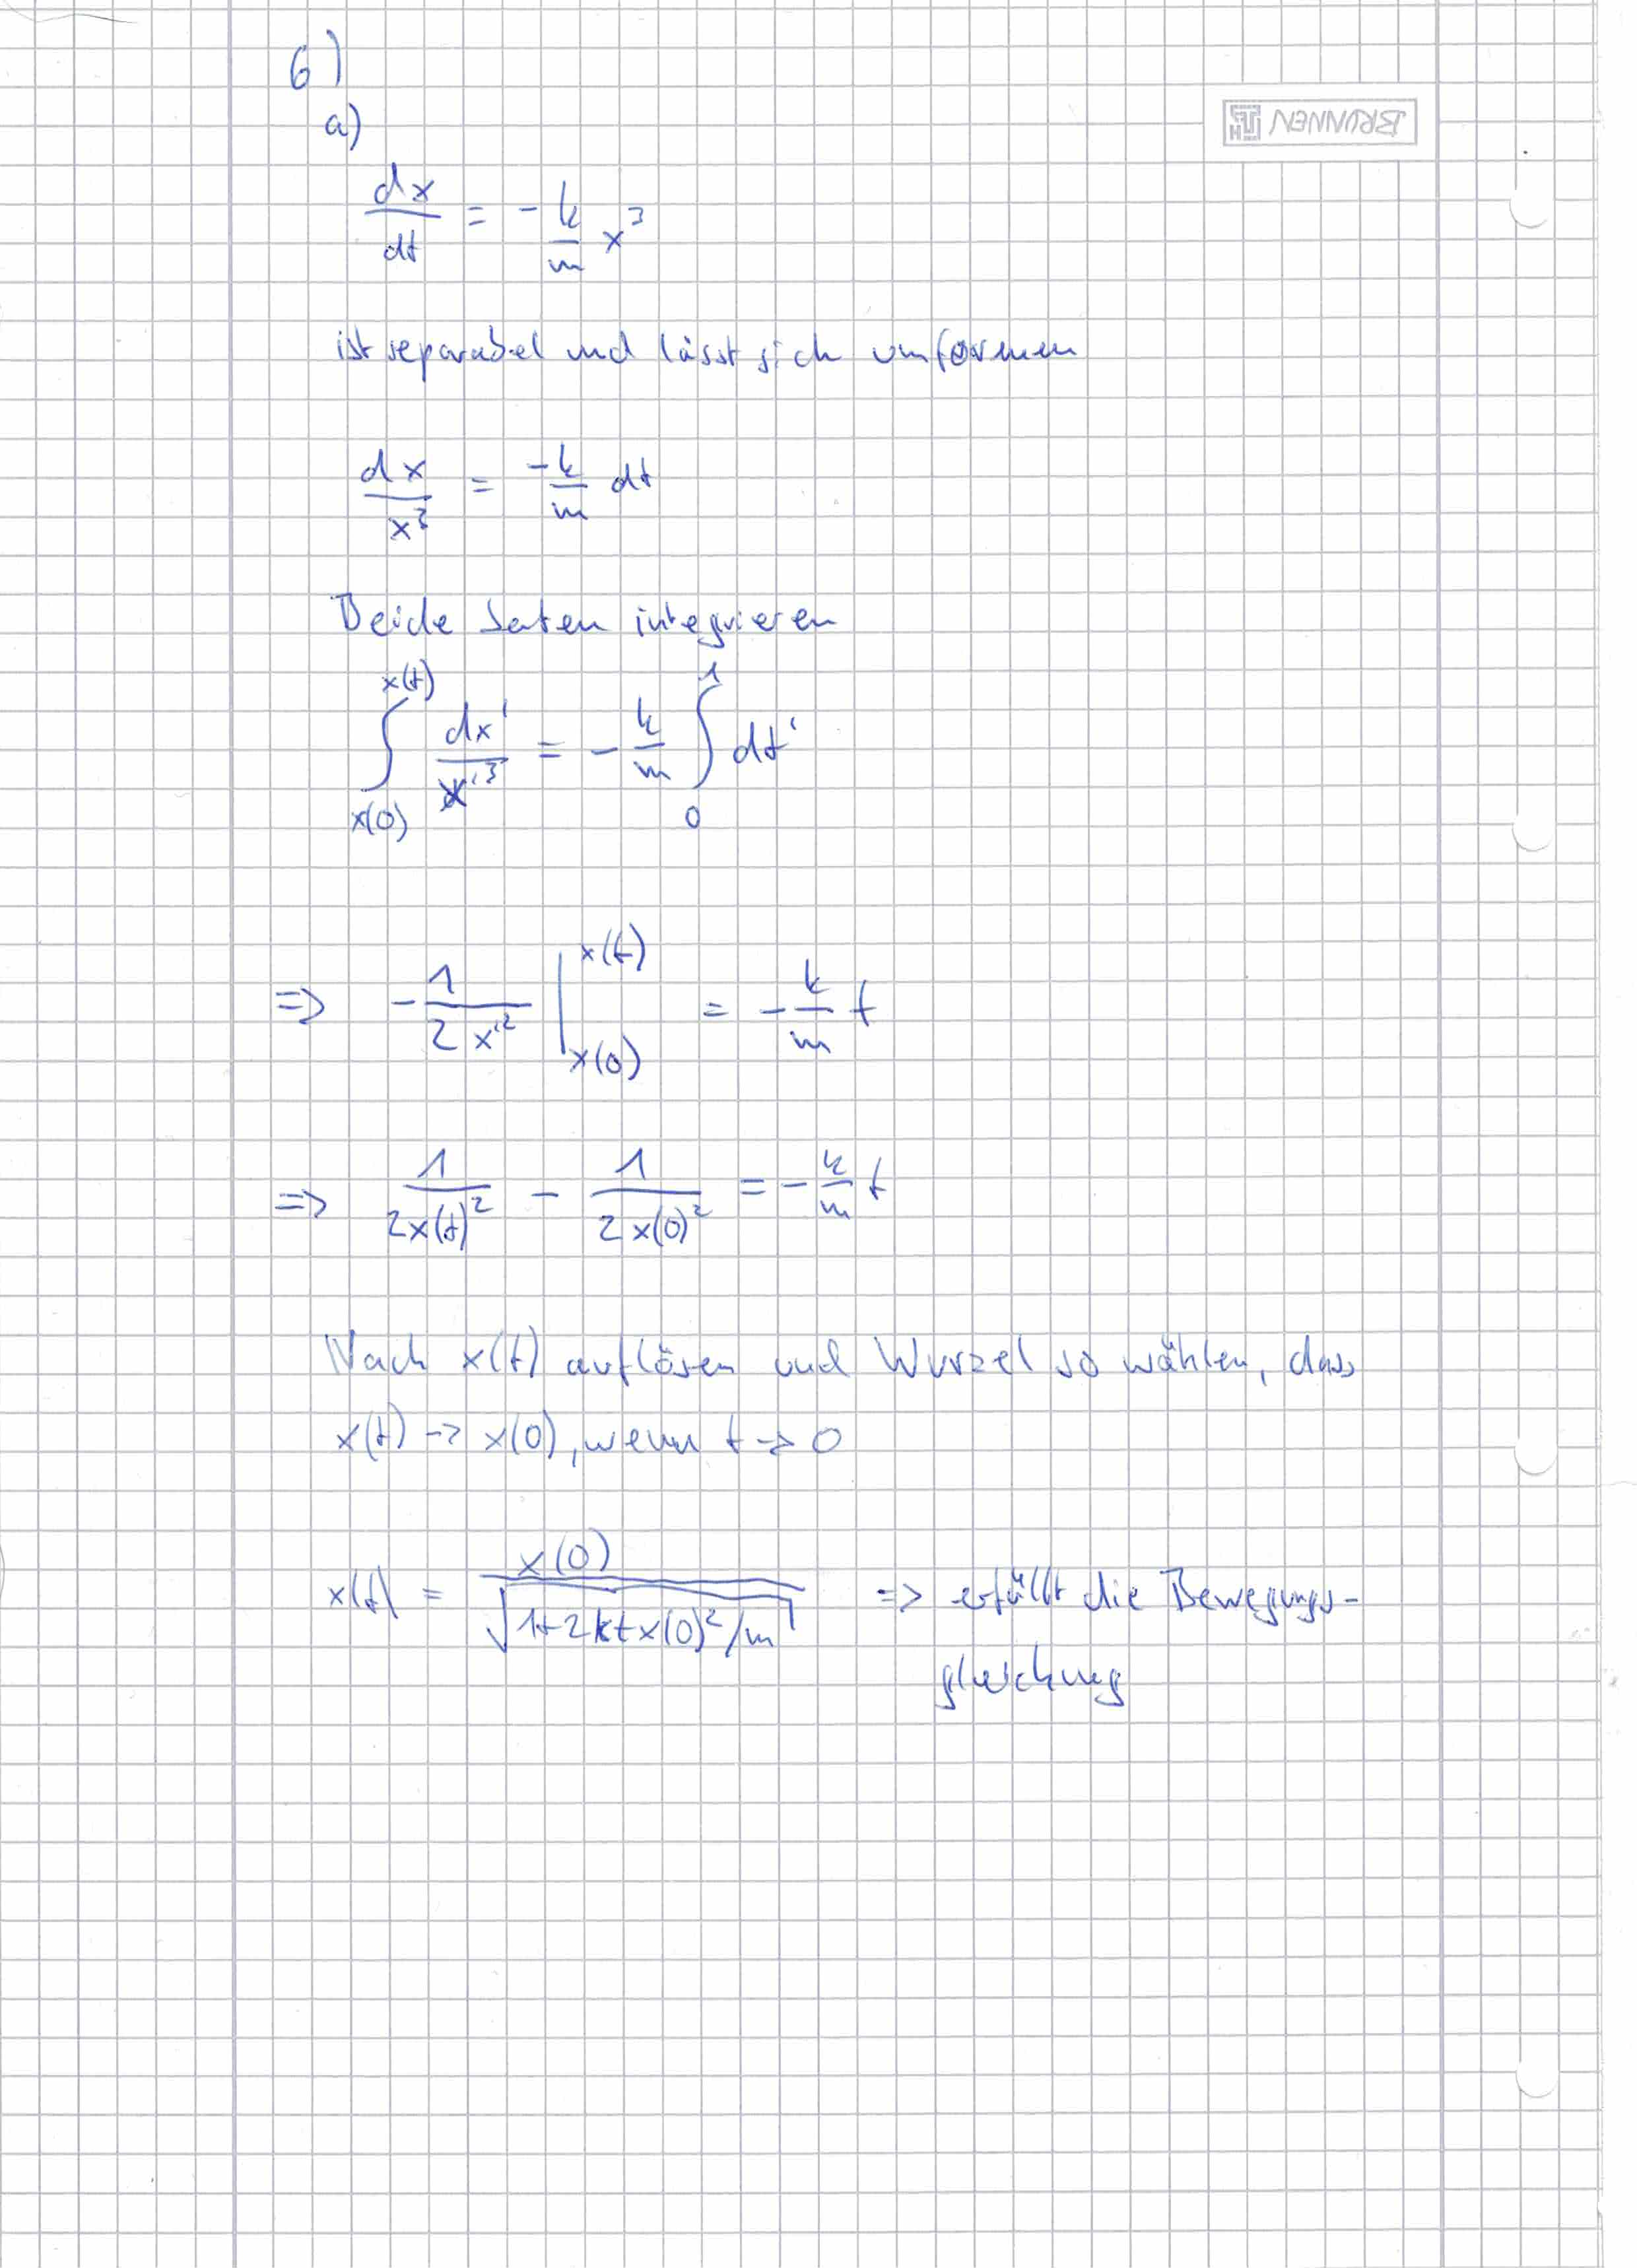 BRUNNEN
6)
a)
dx/dt = - k/m x³
ist separabel und lässt sich umformen
dx/x³ = -k/m dt
Beide Seiten integrieren
∫_{x(0)}^{x(t)} dx'/x'³ = - k/m ∫_0^1 dt'
=> - 1/(2x'²) |_{x(0)}^{x(t)} = - k/m t
=> 1/(2x(t)²) - 1/(2x(0)²) = - k/m t
Nach x(t) auflösen und Wurzel so wählen, dass
x(t) -> x(0), wenn t -> 0
x(t) = x(0)/√(1+2ktx(0)²/m) => erfüllt die Bewegungs-
gleichung